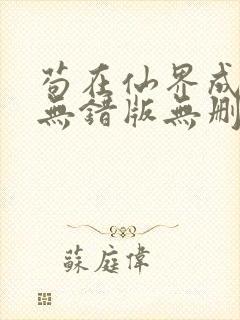 苟在仙界成
無錯版無刪
蘇庭偉